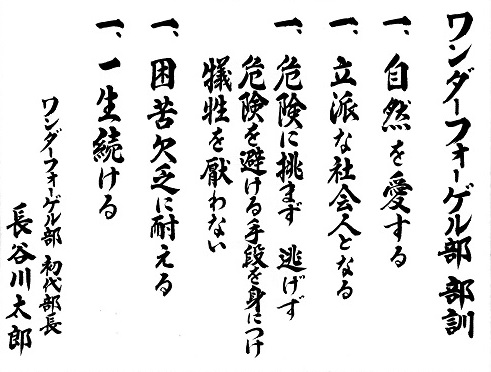 ワンダーフォーゲル部 部訓
一、自然を愛する
一、立派な社会人となる
一、危険に挑まず 逃げず
危険を避ける手段を身につけ
犠牲を厭わない
一、困苦欠乏に耐える
一、一生続ける
ワンダーフォーゲル部 初代部長
長谷川太郎